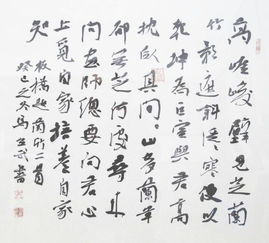 高峻壁見芝蘭
竹影遮斜寒便以
乾坤為巨室與君高
枕臥其間山多蘭草
却無芝何處尋來
問畫師總要向君心
上覓自家培養自家
知 板橋題蘭竹二首
癸巳之冬馬立武書